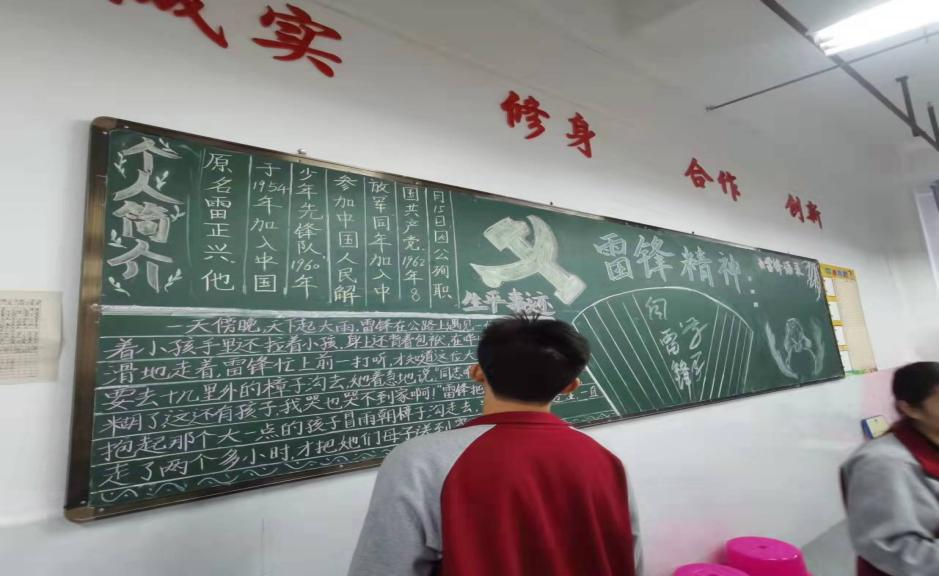 诚实
修身
合作
创新
个人简介
原名雷正兴.他
于1954年加入中国
少年先锋队.1960年
参加中国人民解
放军同年加入中
国共产党.1962年8
月15日因公殉职
生平事迹
雷锋精神
向雷锋学
一天傍晚,天下起大雨,雷锋在公路上遇见一
着小孩手里还拉着小孩,身上还背着包袱,在
滑地走着,雷锋忙上前一打听,才知道这位大
要去十几里外的樟子沟去,她着急地说"同志
糊了这还有孩子,我哭也哭不到家啊!"雷锋把
抱起那个大一点的孩子冒雨朝樟子沟走去,
走了两个多小时,才把她们母子送到